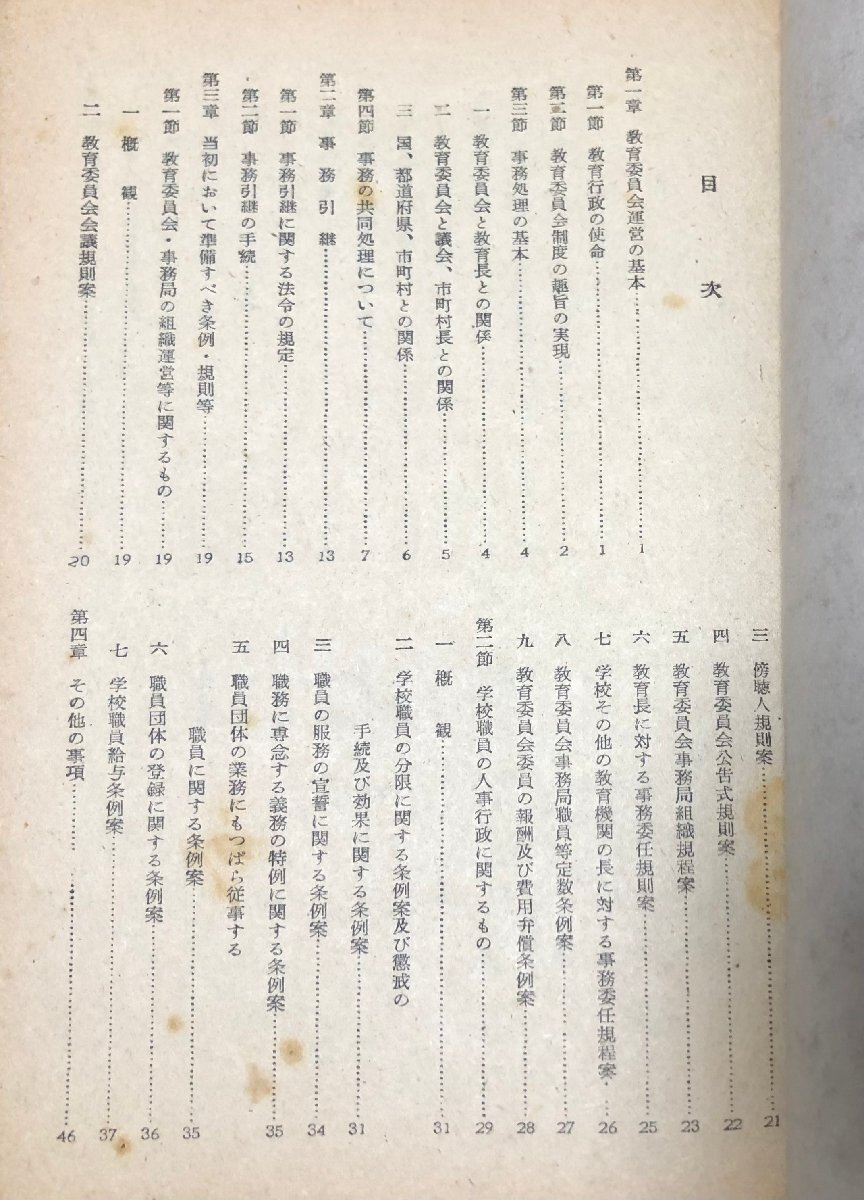 目次
第一章 教育委員会運営の基本……………1
第一節 教育行政の使命……………1
第二節 教育委員会制度の趣旨の実現……………2
第三節 事務処理の基本……………4
一 教育委員会と教育長との関係……………4
二 教育委員会と議会、市町村長との関係……………5
三 国、都道府県、市町村との関係……………6
第四節 事務の共同処理について……………7
第二章 事務引継……………13
第一節 事務引継に関する法令の規定……………13
第二節 事務引継の手続……………15
第三章 当初において準備すべき条例・規則等……………19
第一節 教育委員会・事務局の組織運営等に関するもの……………19
一 概観……………19
二 教育委員会会議規則案……………20
三 傍聴人規則案……………21
四 教育委員会公告式規則案……………22
五 教育委員会事務局組織規程案……………23
六 教育長に対する事務委任規則案……………25
七 学校その他の教育機関の長に対する事務委任規程案……………26
八 教育委員会事務局職員等定数条例案……………27
九 教育委員会委員の報酬及び費用弁償条例案……………28
第二節 学校職員の人事行政に関するもの……………29
一 概観……………31
二 学校職員の分限に関する条例案及び懲戒の
手続及び効果に関する条例案……………31
三 職員の服務の宣誓に関する条例案……………34
四 職務に専念する義務の特例に関する条例案……………35
五 職員団体の業務にもつぱら従事する
職員に関する条例案……………35
六 職員団体の登録に関する条例案……………36
七 学校職員給与条例案……………37
第四章 その他の事項……………46